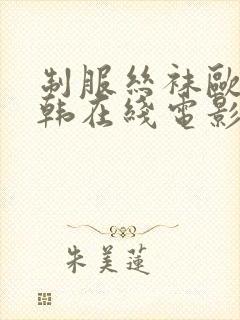 制服丝袜欧
韩在线电影
朱美莲